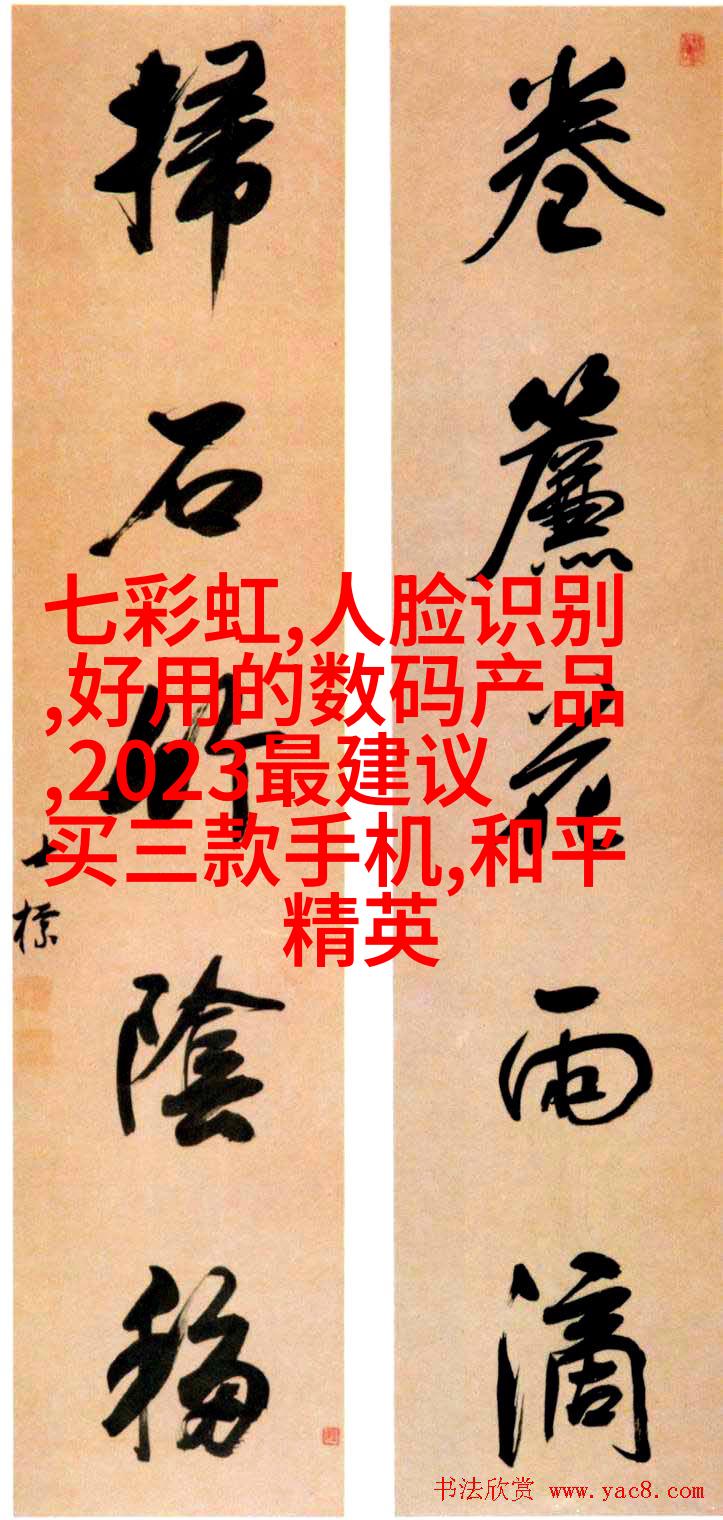 卷簾花雨滴
掃石竹陰移
士標
七彩虹,人脸识别
,好用的数码产品
,2023最建议
买三款手机,和平
精英
书法欣赏 www.yac8.com